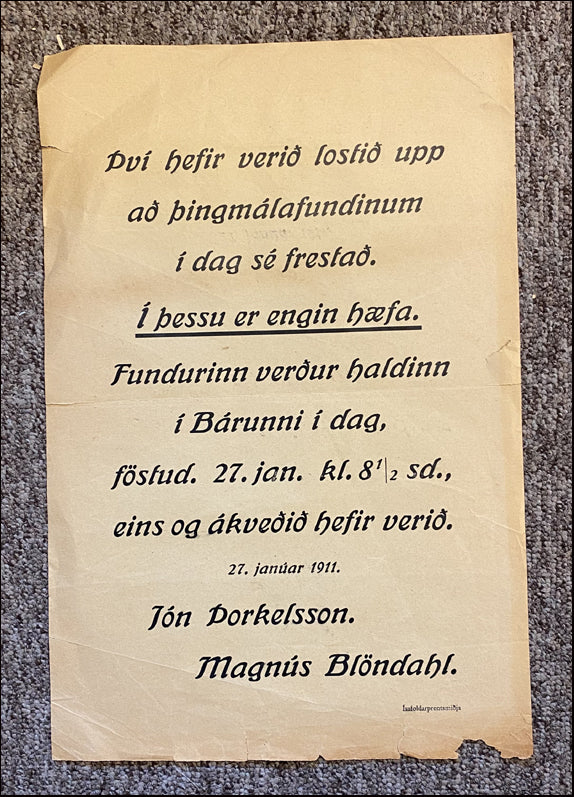 Því hefir verið lostið upp
að þingmálafundinum
í dag sé frestað.
Í þessu er engin hæfa.
Fundurinn verður haldinn
í Bárunni í dag,
föstud. 27. jan. kl. 8 1/2 sd.,
eins og ákveðið hefir verið.
27. janúar 1911.
Jón Þorkelsson.
Magnús Blöndahl.
Ísafoldarprentsmiðja